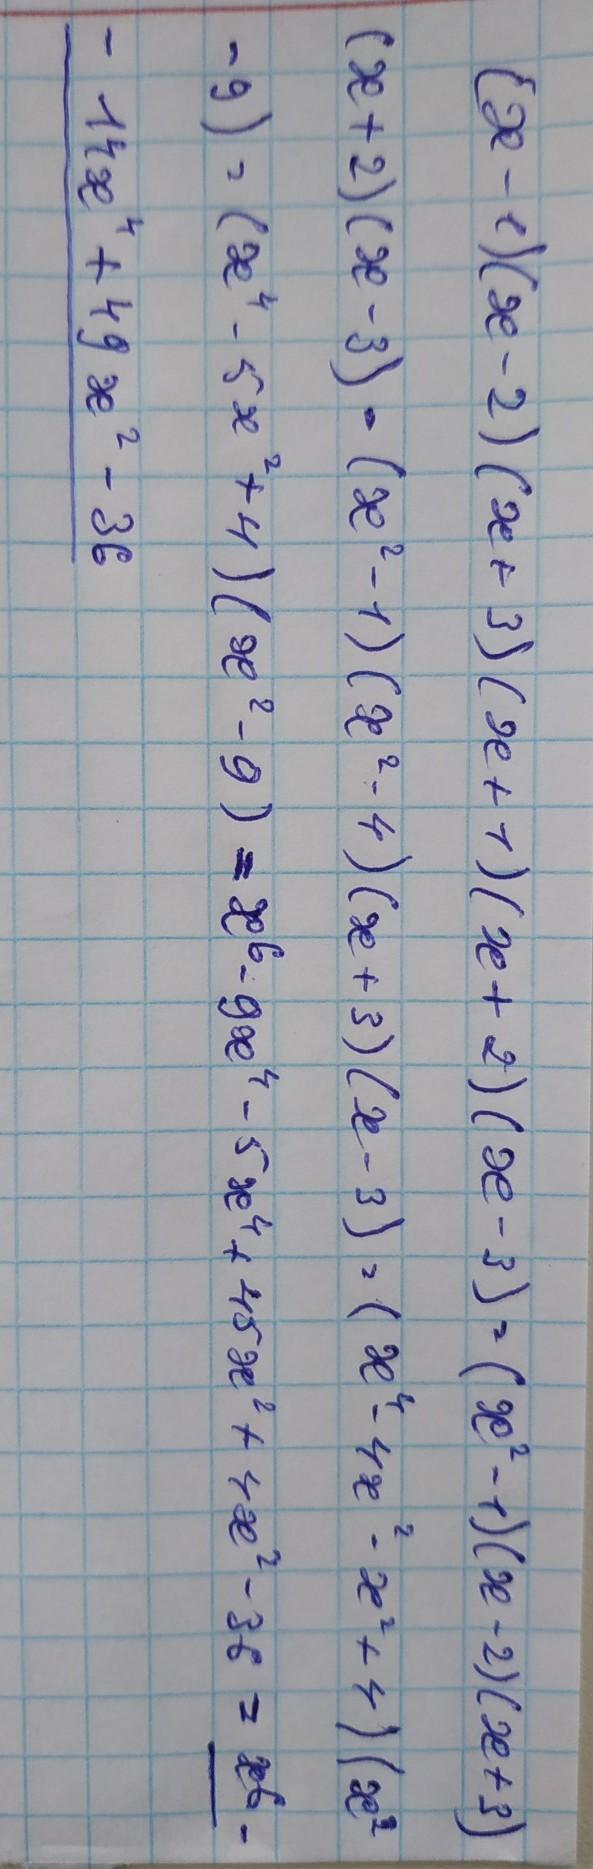 (x-1)(x-2)(x+3)(x+1)(x+2)(x-3)=(x²-1)(x-2)(x+3)
(x+2)(x-3)=(x²-1)(x²-4)(x+3)(x-3)=(x⁴-4x²-x²+4)(x²
-9)=(x⁴-5x²+4)(x²-9)=x⁶-9x⁴-5x⁴+45x²+4x²-36=x⁶-
-14x⁴+49x²-36